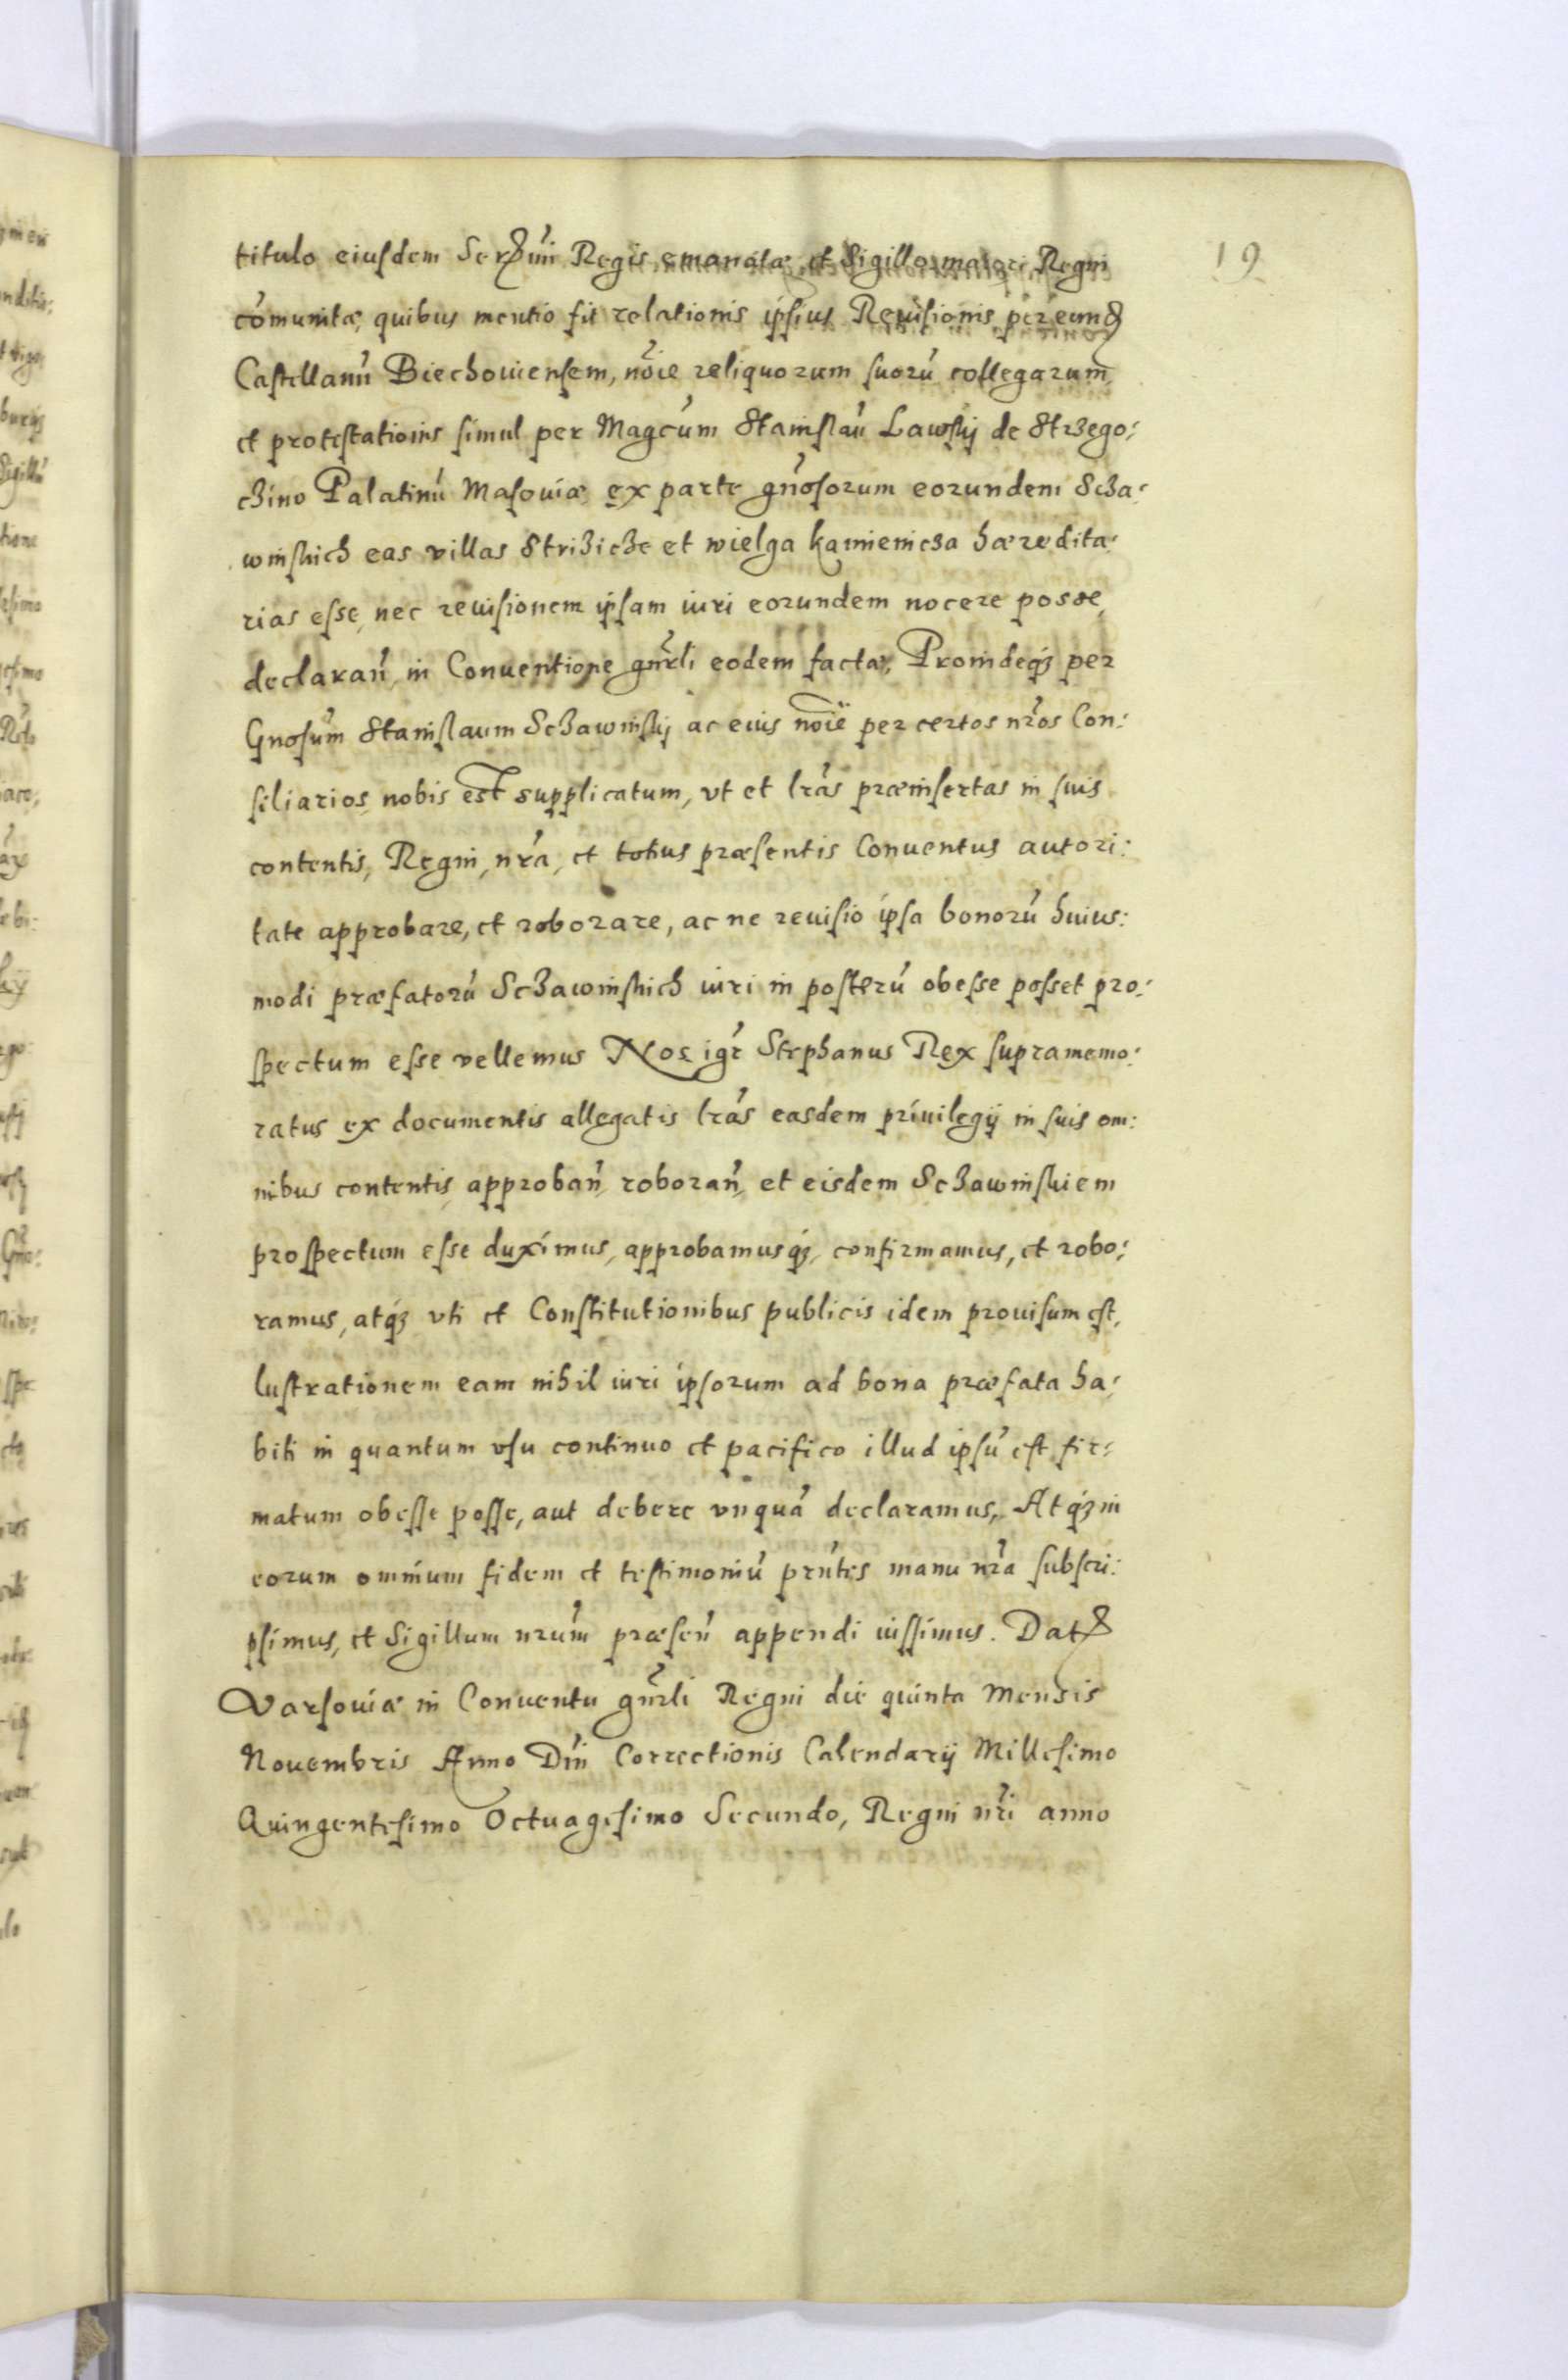 19
titulo eiusdem Serꝭmi Regis emanatæ et Sigillo maiori Regni
cōmunitæ, quibus mentio fit relationis ipsius Reuisionis per eundꝭ
Castellanū Biechouiensem, nōie reliquorum suorū collegarum,
et protestationis simul per Magcūm Stanislaū Lawskÿ de Strzego:
czino Palatinū Masouiæ ex parte gn̄osorum eorundem Scza:
winskich eas villas Strizicze et wielga kamienicza hæredita:
rias esse, nec reuisionem ipsam iuri eorundem nocere posse,
declaran̄, in Conuentione gn̄rli eodem factæ, Proindeqꝫ per
Gnosūm Stanislaum Sczawinskÿ ac eius nōie per certos nr̄os Con:
siliarios, nobis est supplicatum, vt et lrās præinsertas in suis
contentis, Regni, nr̄a, et totius præsentis Conuentus autori:
tate approbare, et roborare, ac ne reuisio ipsa bonorū huius:
modi præfatorū Sczawinskich iuri in posterū obesse posset pro:
spectum esse vellemus Nos igr̄ Stephanus Rex supramemo:
ratus ex documentis allegatis lrās easdem priuilegÿ in suis om:
nibus contentis approban̄, roboran̄, et eisdem Sczawinskiem
prospectum esse duximus, approbamusqꝫ, confirmamus, et robo:
ramus, atqꝫ vti et Constitutionibus publicis idem prouisum est,
lustrationem eam nihil iuri ipsorum ad bona præfata ha:
biti in quantum vsu continuo et pacifico illud ipsū est fir:
matum obesse posse, aut debere vnquā declaramus, Atqꝫ in
eorum omnium fidem et testimoniū prn̄tes manu nr̄a subscri:
psimus, et Sigillum nrūm præsen̄ appendi iussimus. Datꝭ
Varsouiæ in Conuentu gn̄rli Regni die quinta Mensis
Nouembris Anno Dn̄i Correctionis Calendarÿ Millesimo
Quingentesimo Octuagesimo Secundo, Regni nr̄i anno